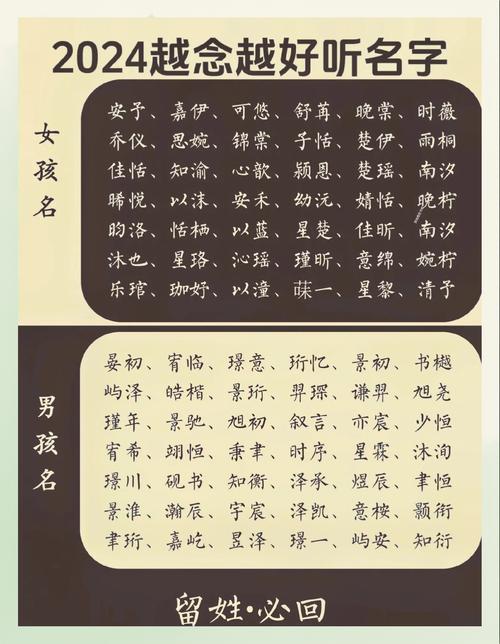 2024越念越好听名字
女孩名
安予、嘉伊、可悠、舒苒、晚棠、时薇
乔仪、思婉、锦棠、子恬、楚伊、雨桐
佳恬、知渝、心歆、颍恩、楚瑶、南汐
晞悦、以沫、安禾、幼沅、婧恬、晚柠
昀洛、恬栖、以蓝、星楚、佳昕、南汐
沐也、星珞、沁瑶、瑾昕、意绵、婉柠
乐琯、珈妤、以潼、菻一、星黎、清予
男孩名
晏初、宥临、璟意、珩忆、景初、书樾
屿泽、皓楷、景珩、羿琛、谦羿、旭尧
瑾年、景驰、旭初、叙言、亦宸、少恒
宥希、翊恒、秉聿、时序、星霖、沐洵
璟川、砚书、知衡、泽承、煜辰、聿恒
景淮、瀚辰、宇宸、泽凯、意桉、颢衔
聿珩、嘉屹、昱泽、璟一、屿安、知衍
留姓·必回